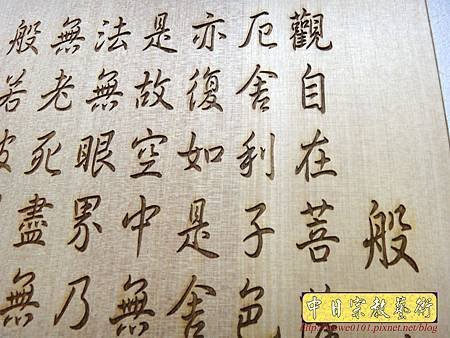 般
觀自在菩
厄舍利子色
亦復如是舍
是故空中無
法無眼界乃
無老死盡無
般若
中日宗教藝術